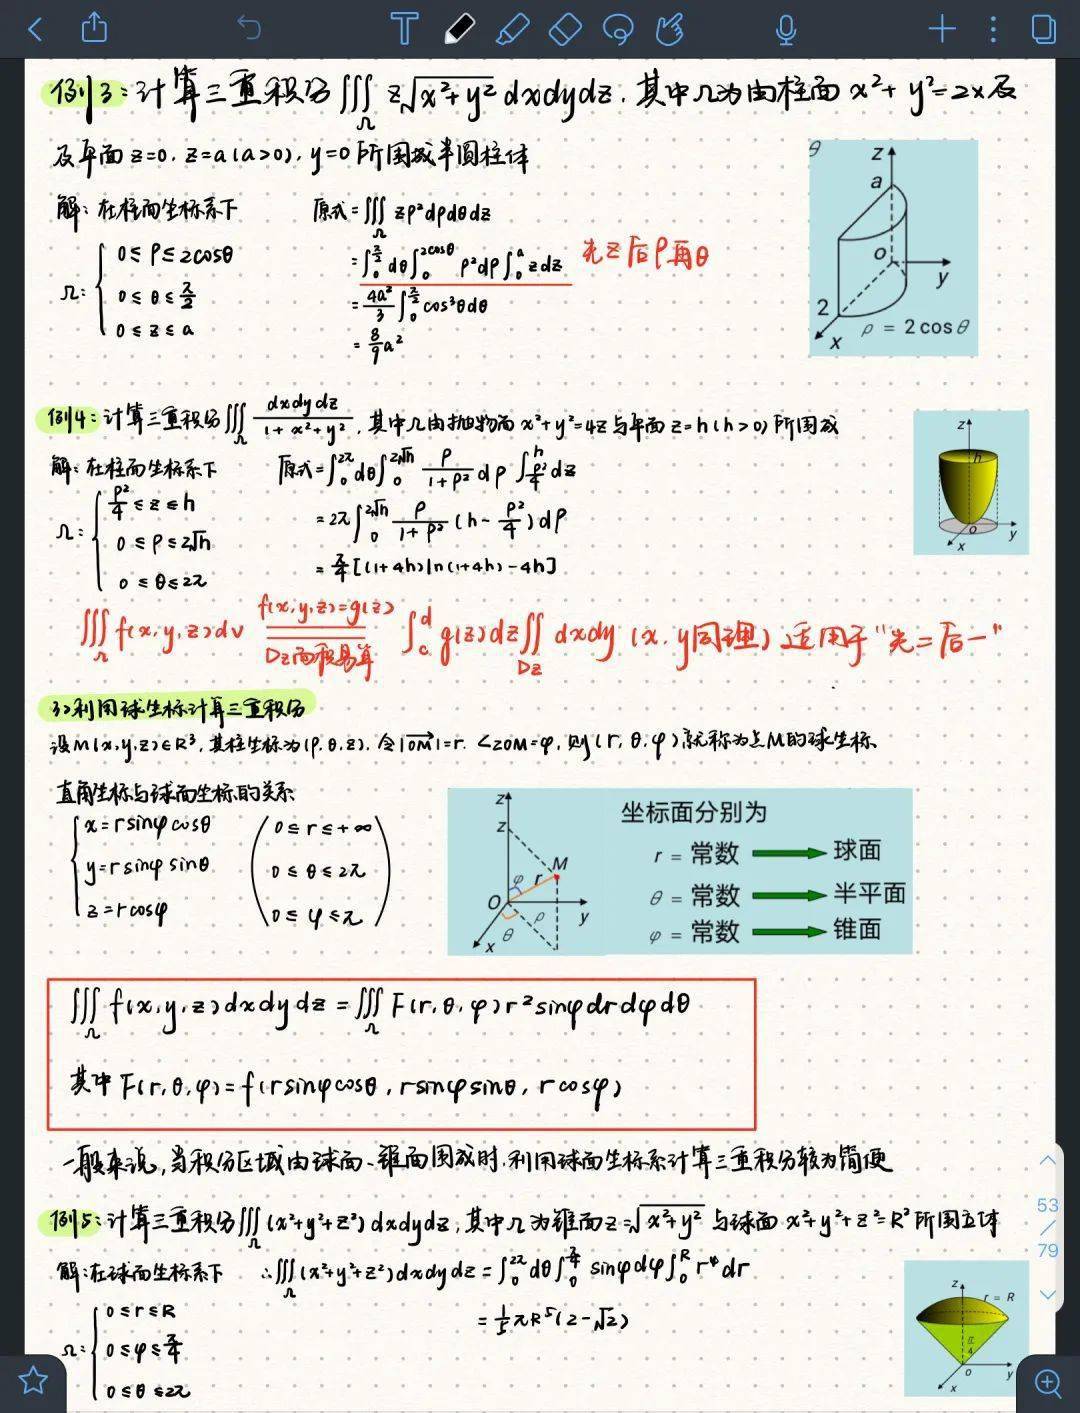 例3:计算三重积分∭_Ω z√(x²+y²) dxdydz,其中Ω为由柱面 x²+y²=2x及
及平面 z=0, z=a(a>0), y=0 所围成半圆柱体
解:在柱面坐标系下
Ω: { 0≤ρ≤2cosθ
0≤θ≤π/2
0≤z≤a
原式=∭_Ω zρ²dρdθdz
=∫_0^{π/2} dθ∫_0^{2cosθ} ρ²dρ∫_0^a zdz 先z后ρ再θ
=4a²/3 ∫_0^{π/2} cos³θdθ
=8/9 a²
θ
z
a
o
y
2
x
ρ = 2 cos θ
例4:计算三重积分∭ dxdydz/(1+x²+y²),其中Ω由抛物面 x²+y²=4z与平面 z=h(h>0)所围成
解:在柱面坐标系下
Ω: { ρ²/4≤z≤h
0≤ρ≤2√h
0≤θ≤2π
原式=∫_0^{2π} dθ∫_0^{2√h} ρ/(1+ρ²) dρ ∫_{ρ²/4}^h dz
=2π∫_0^{2√h} ρ/(1+ρ²) (h-ρ²/4)dρ
=π/4[(1+4h)ln(1+4h)-4h]
z
h
o
y
x
∭_Ω f(x,y,z)dv f(x,y,z)=g(z) Dz面积易算 ∫_c^d g(z)dz∬_Dz dxdy (x,y同理) 适用于"先二后一"
3>利用球坐标计算三重积分
设M(x,y,z)∈R³,其柱坐标为(ρ,θ,z),令|OM|=r,∠zOM=φ,则(r,θ,φ)就称为点M的球坐标
直角坐标与球面坐标的关系
{ x=rsinφcosθ
y=rsinφsinθ
z=rcosφ
( 0≤r≤+∞
0≤θ≤2π
0≤φ≤π )
z
z
M
φ
r
O
y
ρ
θ
x
坐标面分别为
r = 常数 → 球面
θ = 常数 → 半平面
φ = 常数 → 锥面
∭_Ω f(x,y,z)dxdydz=∭_Ω F(r,θ,φ)r²sinφdrdφdθ
其中 F(r,θ,φ)=f(rsinφcosθ,rsinφsinθ,rcosφ)
一般来说,当积分区域由球面、锥面围成时,利用球面坐标系计算三重积分较为简便
例5:计算三重积分∭_Ω(x²+y²+z²)dxdydz,其中Ω为锥面z=√(x²+y²)与球面 x²+y²+z²=R²所围立体
解:在球面坐标系下
Ω: { 0≤r≤R
0≤φ≤π/4
0≤θ≤2π
∴∭_Ω(x²+y²+z²)dxdydz=∫_0^{2π}dθ∫_0^{π/4} sinφdφ∫_0^R r⁴dr
=1/5 πR⁵(2-√2)
z
r = R
π/4
o
y
x
53
/
79